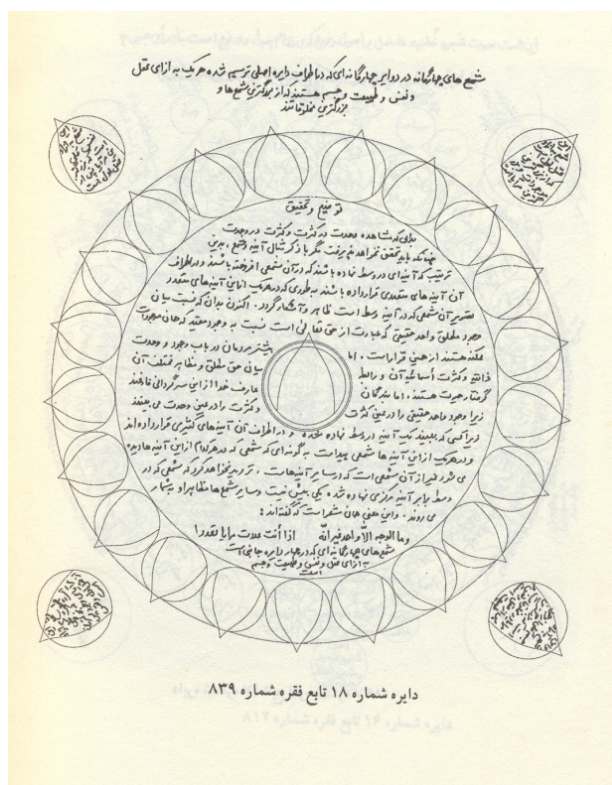 مشمع های چهارگانه در دوایر چهارگانه ای که در اطراف دایره اصلی ترسیم شده هریک به ازای عقل
ونفس و طبیعت و جسم هستند که از بزرگترین شمع ها و
بزرگترین مخلوقاتند
توضیح و تحقیق
بدان که مشاهده وحدت در کثرت و کثرت در وحدت
چنانکه باید تحقق نخواهد پذیرفت مگر با ذکر مثال آینه و شمع، بدین
ترتیب که آینه ای در وسط نهاده باشند که در آن شمعی افروخته باشند و در اطراف
آن آینه های متعددی قرار داده باشند به طوری که در هریک از این آینه های متعدد
تصویر آن شمعی که در آینه وسط است ظاهر و آشکار گردد. اکنون بدان که نسبت میان
وجود مطلق و واحد حقیقی که عبارت از حق تعالی است نسبت به وجود مقید که همان موجودات
ممکنه هستند از همین قرار است، اما بیشتر مردمان در باب وجود و وحدت
ذاتیه و کثرت اسمائیه آن و رابطه میان حق مطلق و مظاهر مختلف آن
گرفتار حیرت هستند، اما بندگان عارف خدا از این سرگردانی فارغند
زیرا وجود واحد حقیقی را در عین کثرت و کثرت را در عین وحدت می بینند
زیرا کسی که ببیند یک آینه در وسط نهاده شده و در اطراف آن آینه های کثیری قرار داده اند
و در هریک از این آینه ها شمعی پیداست به گونه ای که شمعی که در هرکدام از این آینه ها دیده
می شود غیر از آن شمعی است که در سایر آینه هاست، تردید نخواهد کرد که شمعی که در
وسط برابر آینه مرکزی نهاده شده یکی بیش نیست و سایر شمع ها مظاهر او به شمار
می روند. و این معنی همان شعر است که گفته اند:
وما الوجه الا واحد غیر انّه اذا أنت عددت المرایا تعددا
شمع های چهارگانه ای که در چهار دایره جانبی است
به ازای عقل و نفس و طبیعت و جسم
است
دایره شماره ۱۸ تابع فقره شماره ۸۳۹